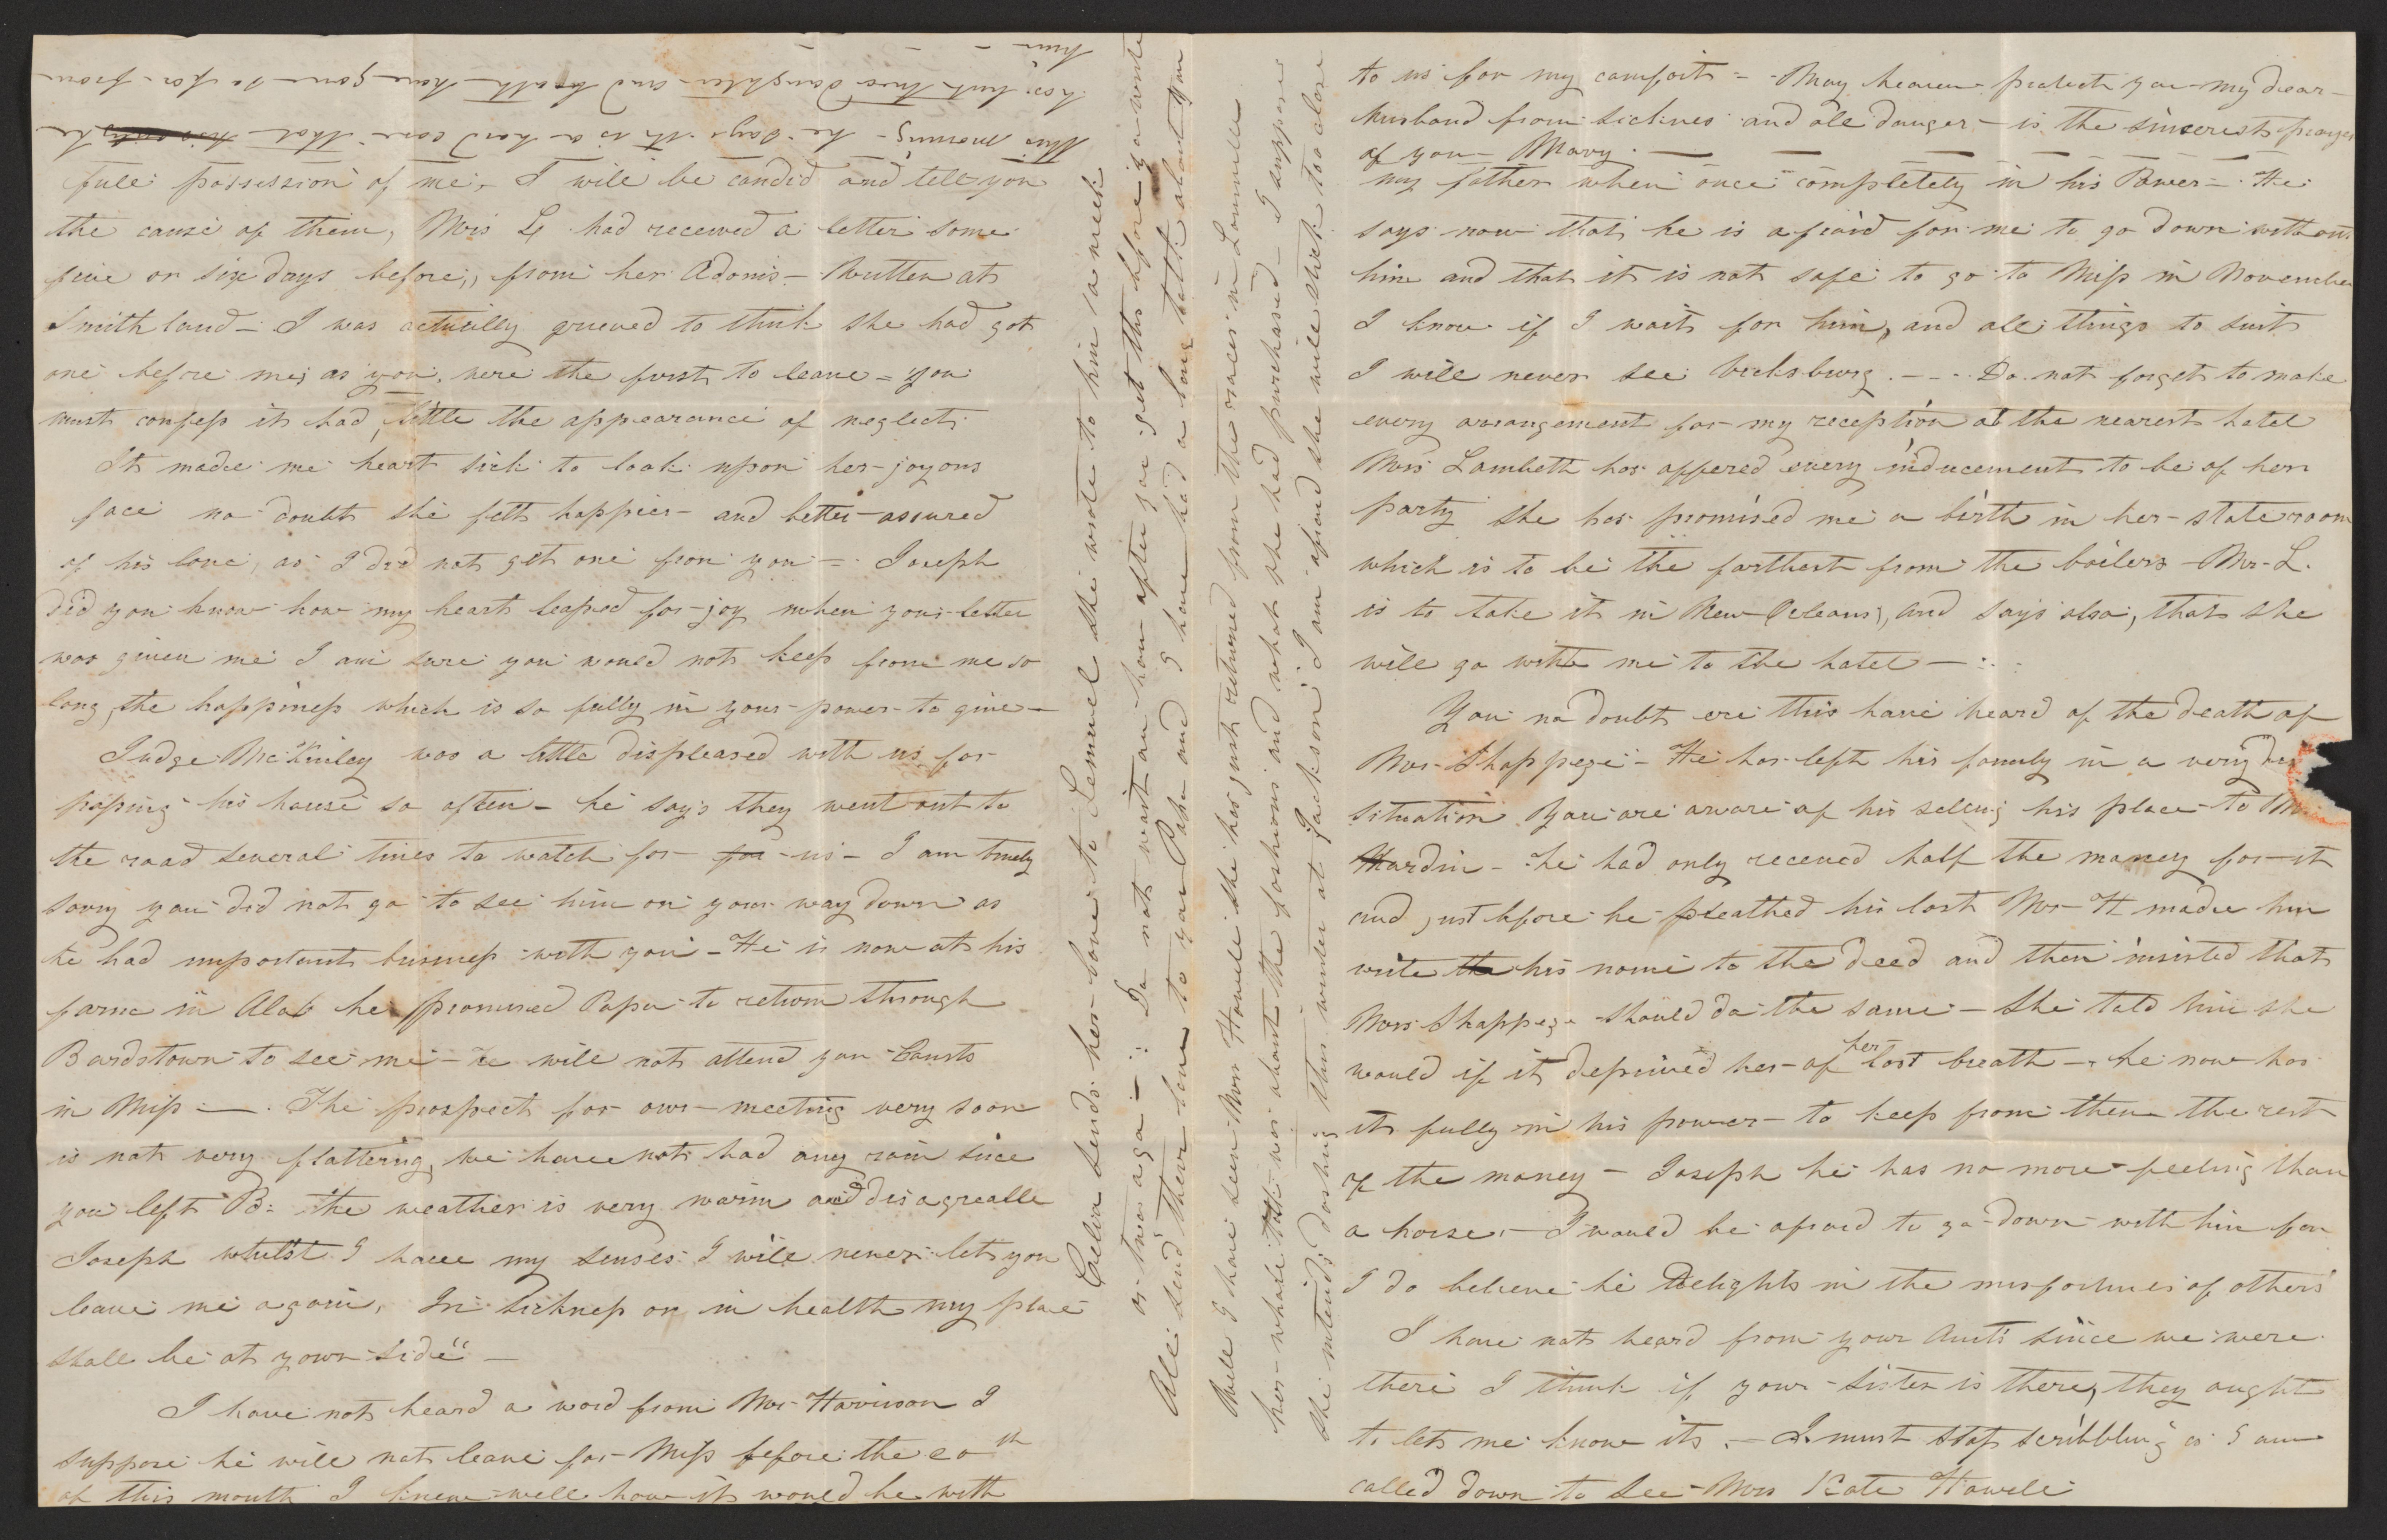 full possession of me. I will be candid and tell you
the cause of them, Mrs L had received a letter some
five or six days before, from her Adonis - Written at
Smithland - I was actually grieved to think she had got
one before me, as you were the first to leave - you
must confess it had little the appearance of neglect
It made me heart sick to look upon her joyous
face no doubt she felt happier - and better assured
of his love, as I did not get one from you - Joseph
did you know how my heart leaped for joy when your letter
was given me I am sure you would not keep from me so
long, the happiness which is so fully in your power to give -
Judge McKinley was a little displeased with us for
passing his house so often - he says they went out to
the road several times to watch for for us - I am truly
sorry you did not go to see him on your way down as
he had important business with you - He is now at his
farm in Alab he promised Papa to return through
Bardstown to see me - he will not attend you Courts
in Miss - . The prospect for our meeting very soon
is not very flattering, we have not had any rain since
you left B: the weather is very warm and disagreable
Joseph whilst I have my senses I will never let you
leave me again, In sickness or in health my place
shall be at your side -
I have not heard a word from Mr Harrison I
suppose he will not leave for Miss before the 20th
of this month I knew well how it would be with
my father when once completely in his Power - He
says now that he is afraid for me to go down without
him and that it is not safe to go to Miss in November
I know if I wait for him, and all things to suit
I will never see Vicksburg. - - Do not forget to make
every arrangement for my reception at the nearest hotel
Mrs Lambeth has offered every inducement to be of her
party she has promised me a birth in her state room
which is to be the farthest from the boilers - Mr L.
is to take it in New Orleans, and says also, that she
will go with me to the hotel -
You no doubt ere this have heard of the death of
Mr Shappeze - He has left his family in a very
situation You are aware of his selling his place to
Hardin - he had only received half the money for it
and just before he breathed his last Mr H made him
write the his name to the deed and then insisted that
Mrs Shappeze should do the same - She told him she
would if it deprived her of her last breath - he now has
it fully in his power to keep from them the rest
of the money - Joseph he has no more feeling than
a horse - I would be afraid to go down with him for
I do believe he delights in the misfortunes of others
I have not heard from your Aunts since we were
there I think if your sister is there, they ought
to let me know it. - I must stop scribbling as I am
called down to see Mrs Kate Howell
Well I have seen Mrs Howell she has just returned from the races in Louisville
her whole talk was about the fashions and what she had purchased - I suppose
she intends dashing this winter at Jackson I am afraid she will stick too close
to us for my comfort - May heaven protect you my dear
husband from sickness and all danger - is the sincerest prayer
of you - Mary. -
Celia sends her love to Lemuel she wrote to him a week
or two ago - : Do not wait an hour after you get this before you write
All send their love to you Papa and I have had a long talk about you
this morning - he says it is a hard case that his only he
has but two daughters and both have gone so far from
him -